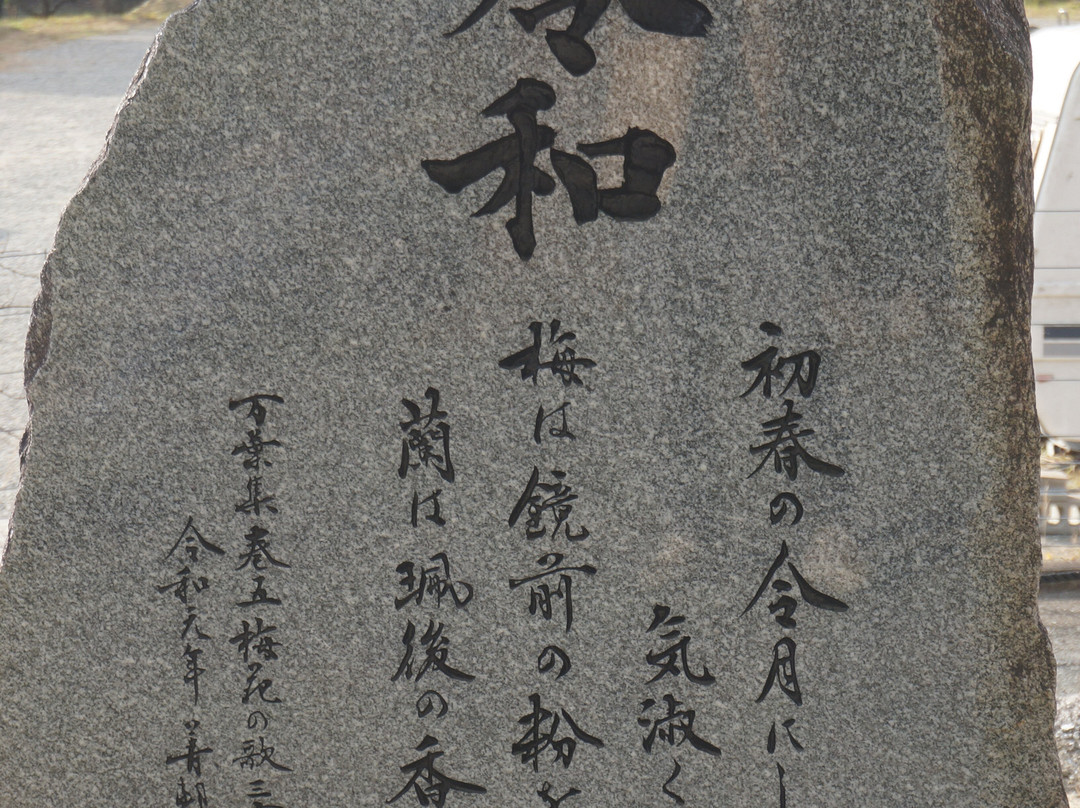 令和
初春の令月にし
気淑く
梅は鏡前の粉を
蘭は珮後の香
万葉集巻五梅花の歌三
令和元年